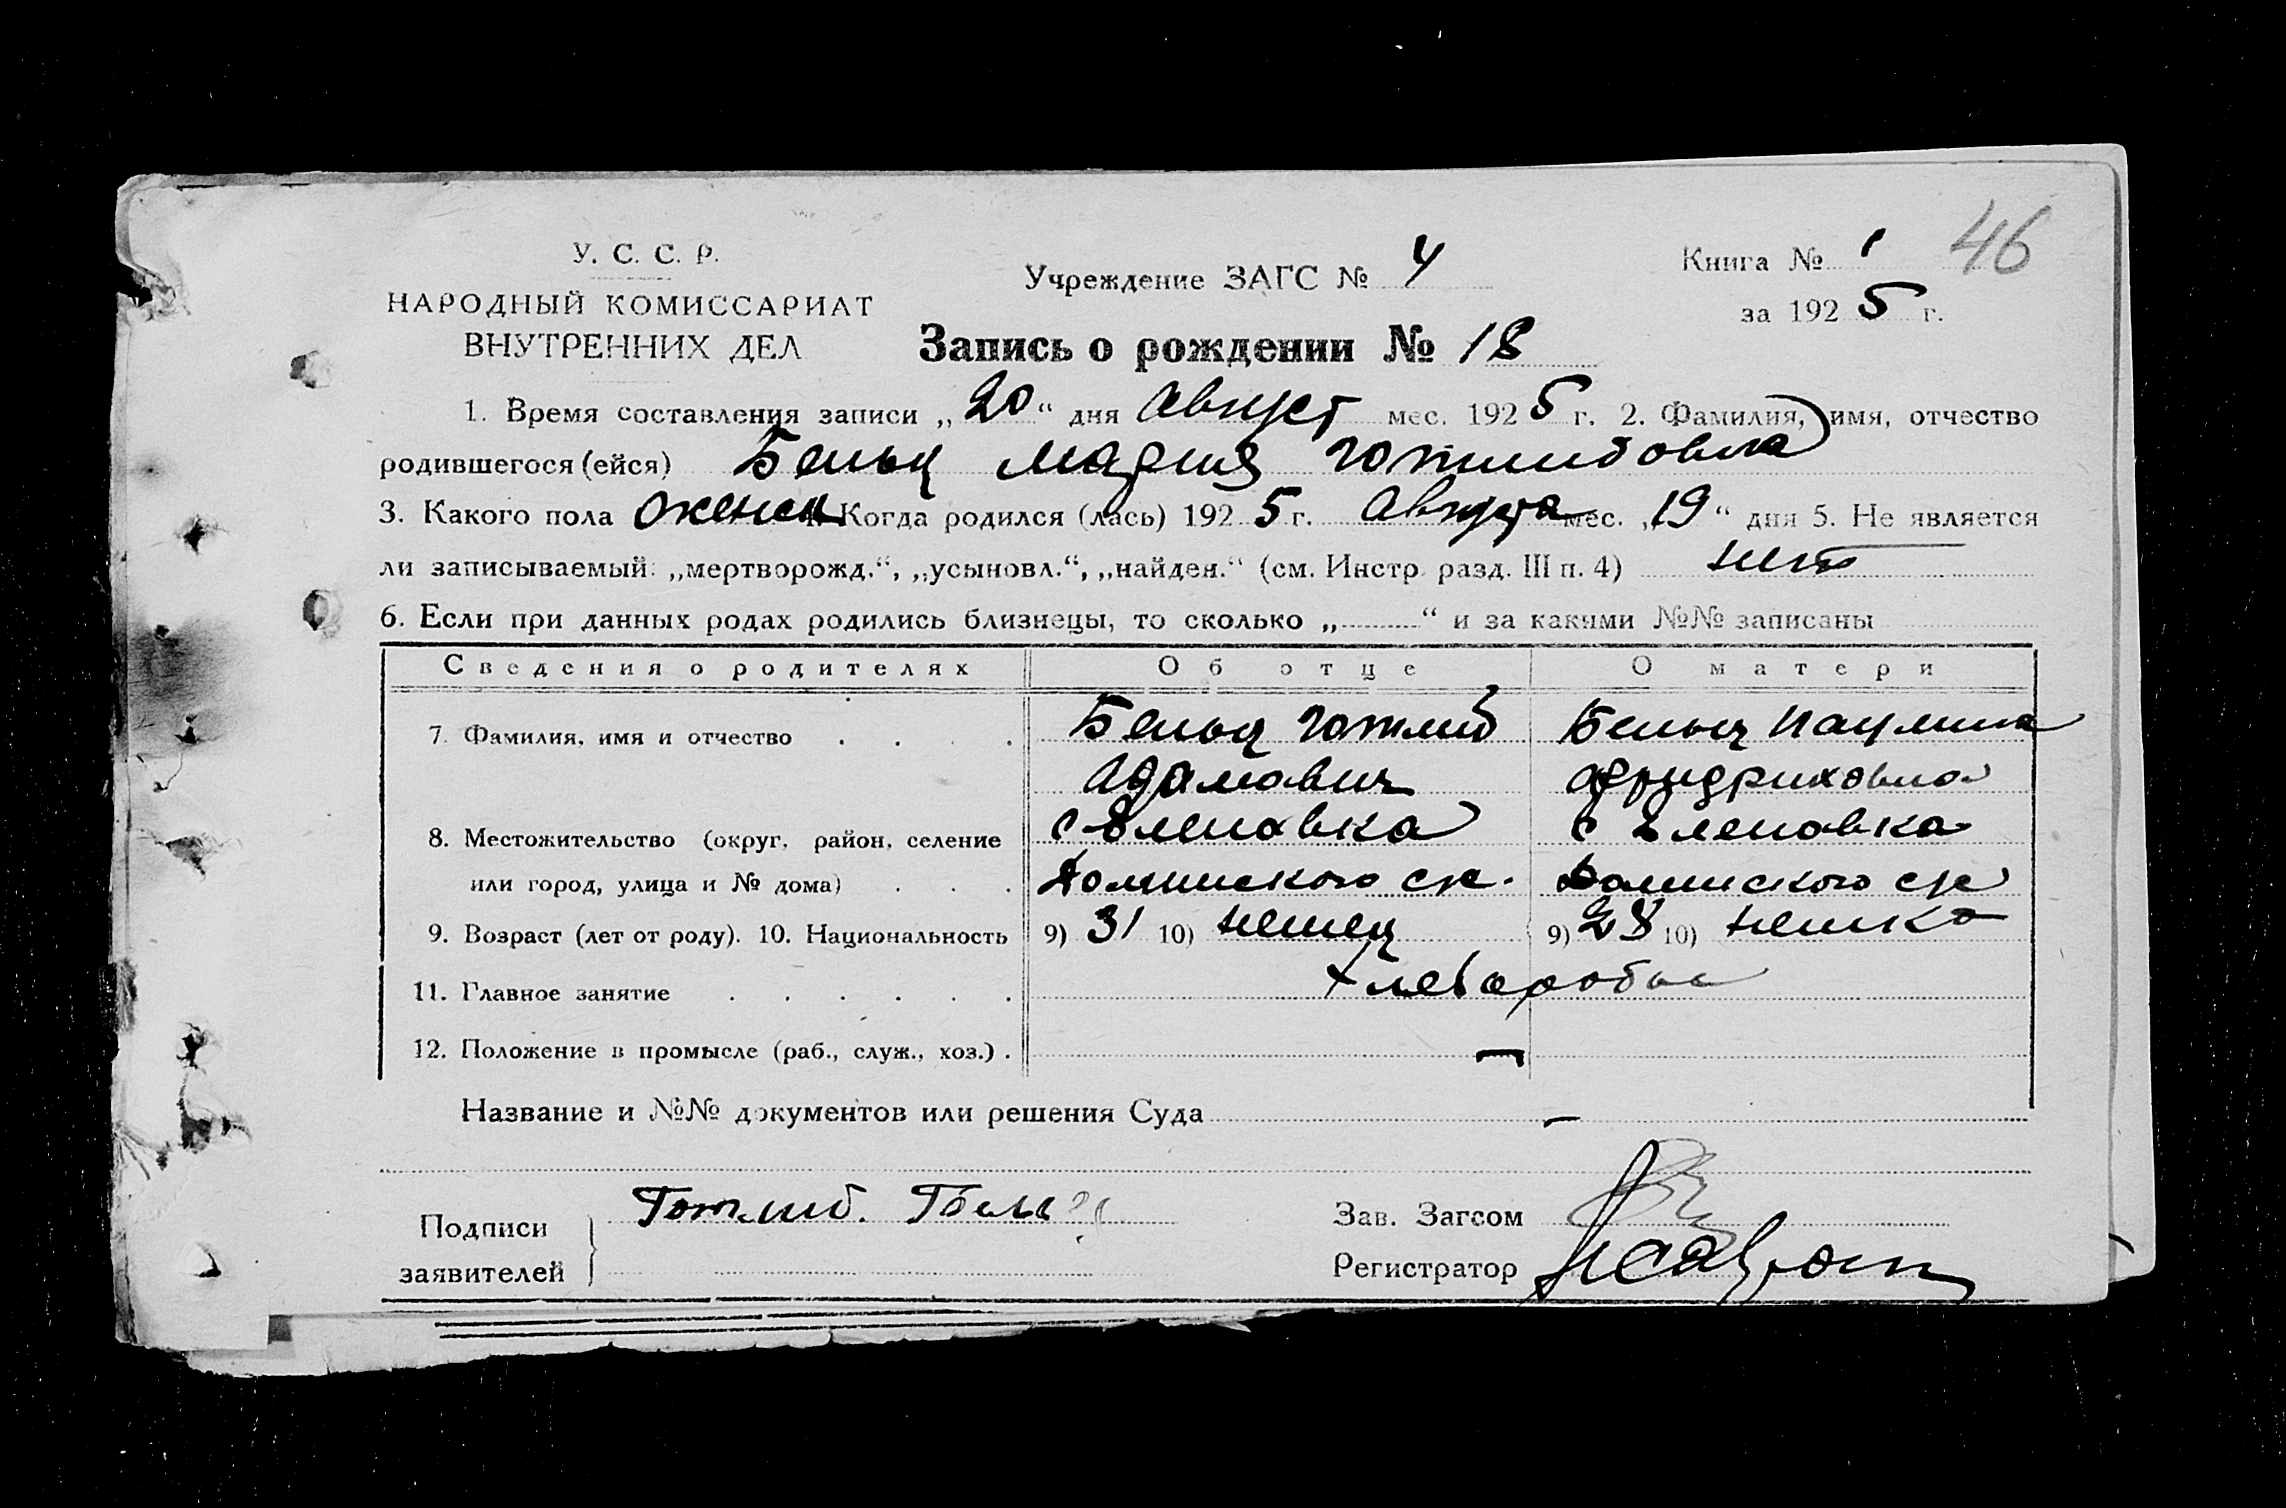 У. С. С. Р.
НАРОДНЫЙ КОМИССАРИАТ
ВНУТРЕННИХ ДЕЛ
Учреждение ЗАГС № 4
Книга № 1
46
за 1925 г.
Запись о рождении № 18
1. Время составления записи „20“ дня Август мес. 1925 г. 2. Фамилия, имя, отчество
родившегося (ейся) Бельц Мария Готлибовна
3. Какого пола женск 4. Когда родился (лась) 1925 г. Августа мес. „19“ дня 5. Не является
ли записываемый: „мертворожд.“, „усыновл.“, „найден.“ (см. Инстр. разд. III п. 4) нет
6. Если при данных родах родились близнецы, то сколько „..........“ и за какими №№ записаны
Сведения о родителях Об отце О матери
7. Фамилия, имя и отчество Бельц Готлиб Бельц Паулина
Адамович Фридриховна
8. Местожительство (округ, район, селение с Еленовка с Еленовка
или город, улица и № дома)
9. Возраст (лет от роду). 10. Национальность 9) 31 10) немец 9) 28 10) немка
11. Главное занятие
12. Положение в промысле (раб., служ., хоз.) . —
Название и №№ документов или решения Суда —
Подписи заявителей Готлиб. Бельц
Зав. Загсом
Регистратор